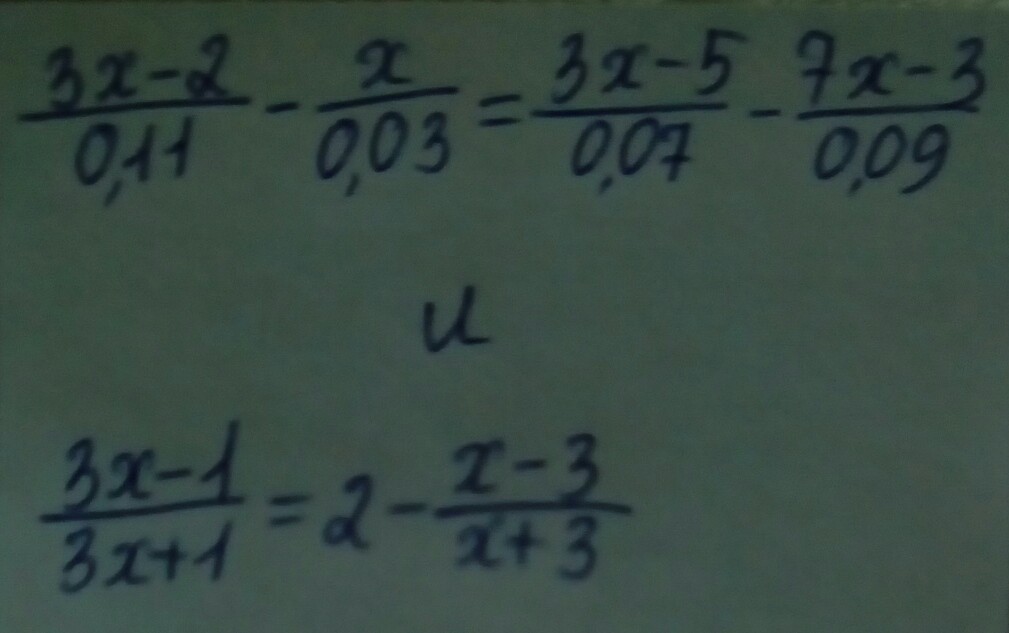 (3x-2)/0,11 - x/0,03 = (3x-5)/0,07 - (7x-3)/0,09
и
(3x-1)/(3x+1) = 2 - (x-3)/(x+3)